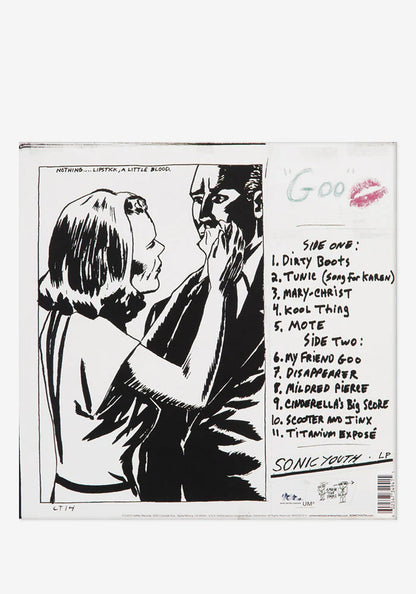 NOTHING.... LIPSTICK, A LITTLE BLOOD.
"Goo"
SIDE ONE:
1. DIRTY BOOTS
2. TUNIC (SONG FOR KAREN)
3. MARY-CHRIST
4. KOOL THING
5. MOTE
SIDE TWO:
6. MY FRIEND GOO
7. DISAPPEARER
8. MILDRED PIERCE
9. CINDERELLA'S BIG SCORE
10. SCOOTER AND JINX
11. TITANIUM EXPOSÉ
SONIC YOUTH · LP
UM